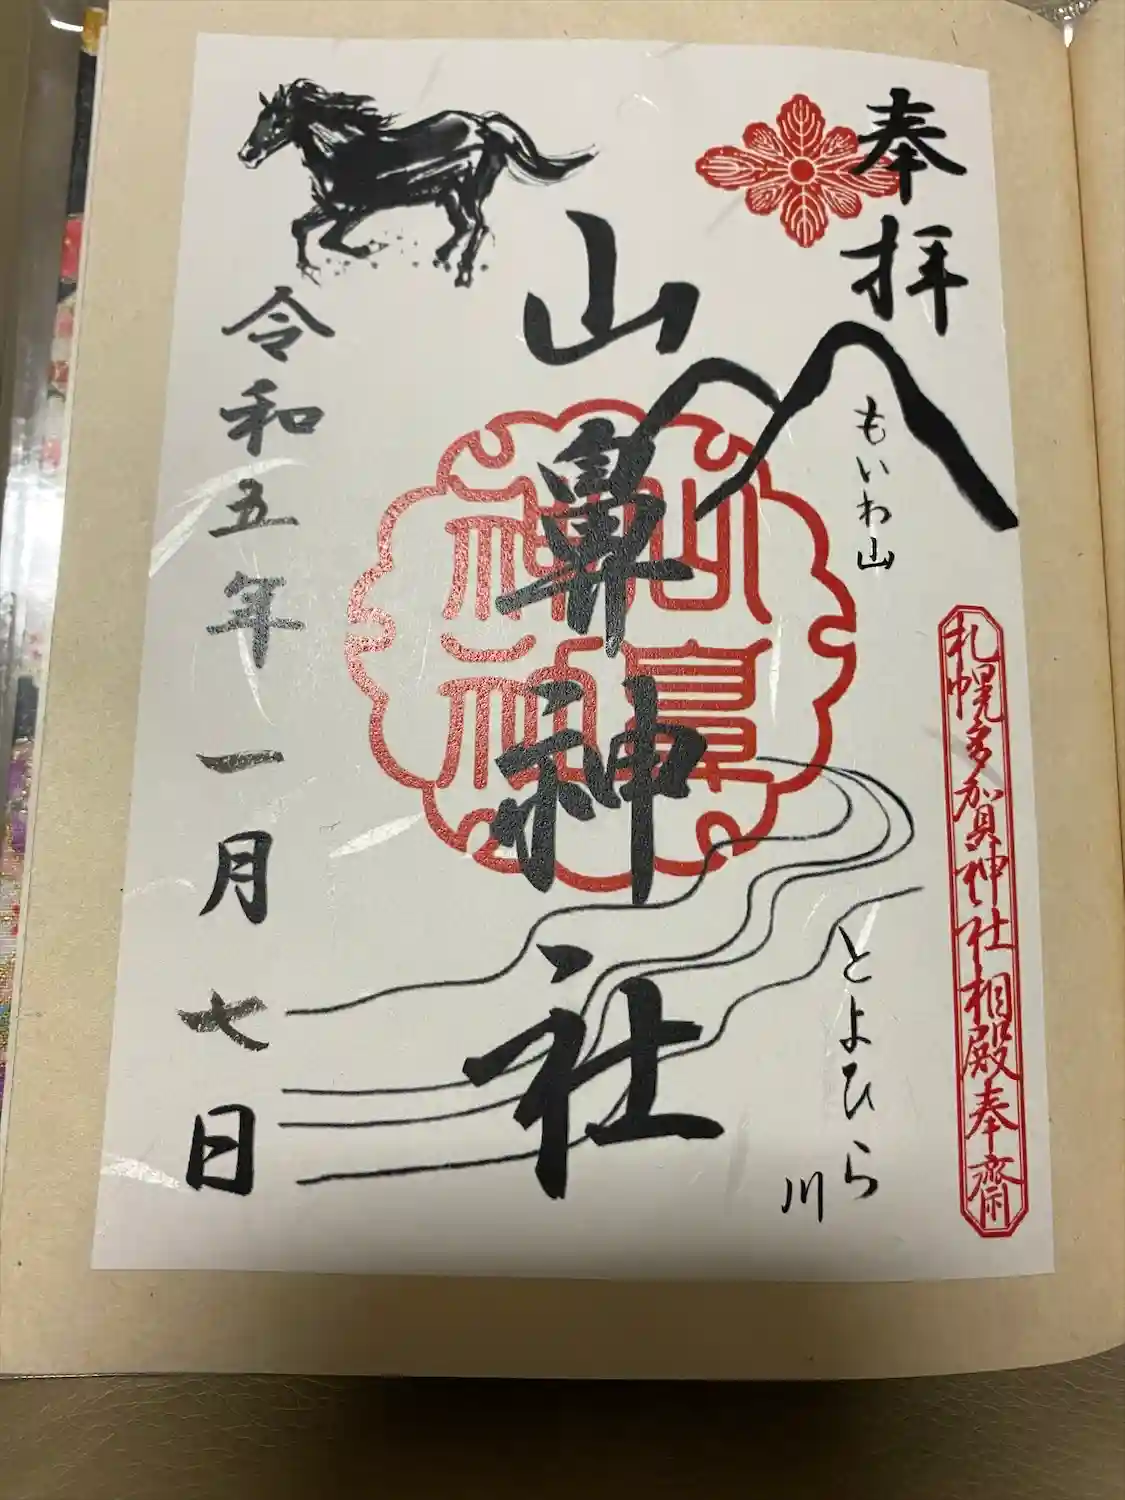 奉拝
もいわ山
札幌多賀神社相殿奉齋
とよひら川
山鼻神社
令和五年一月七日